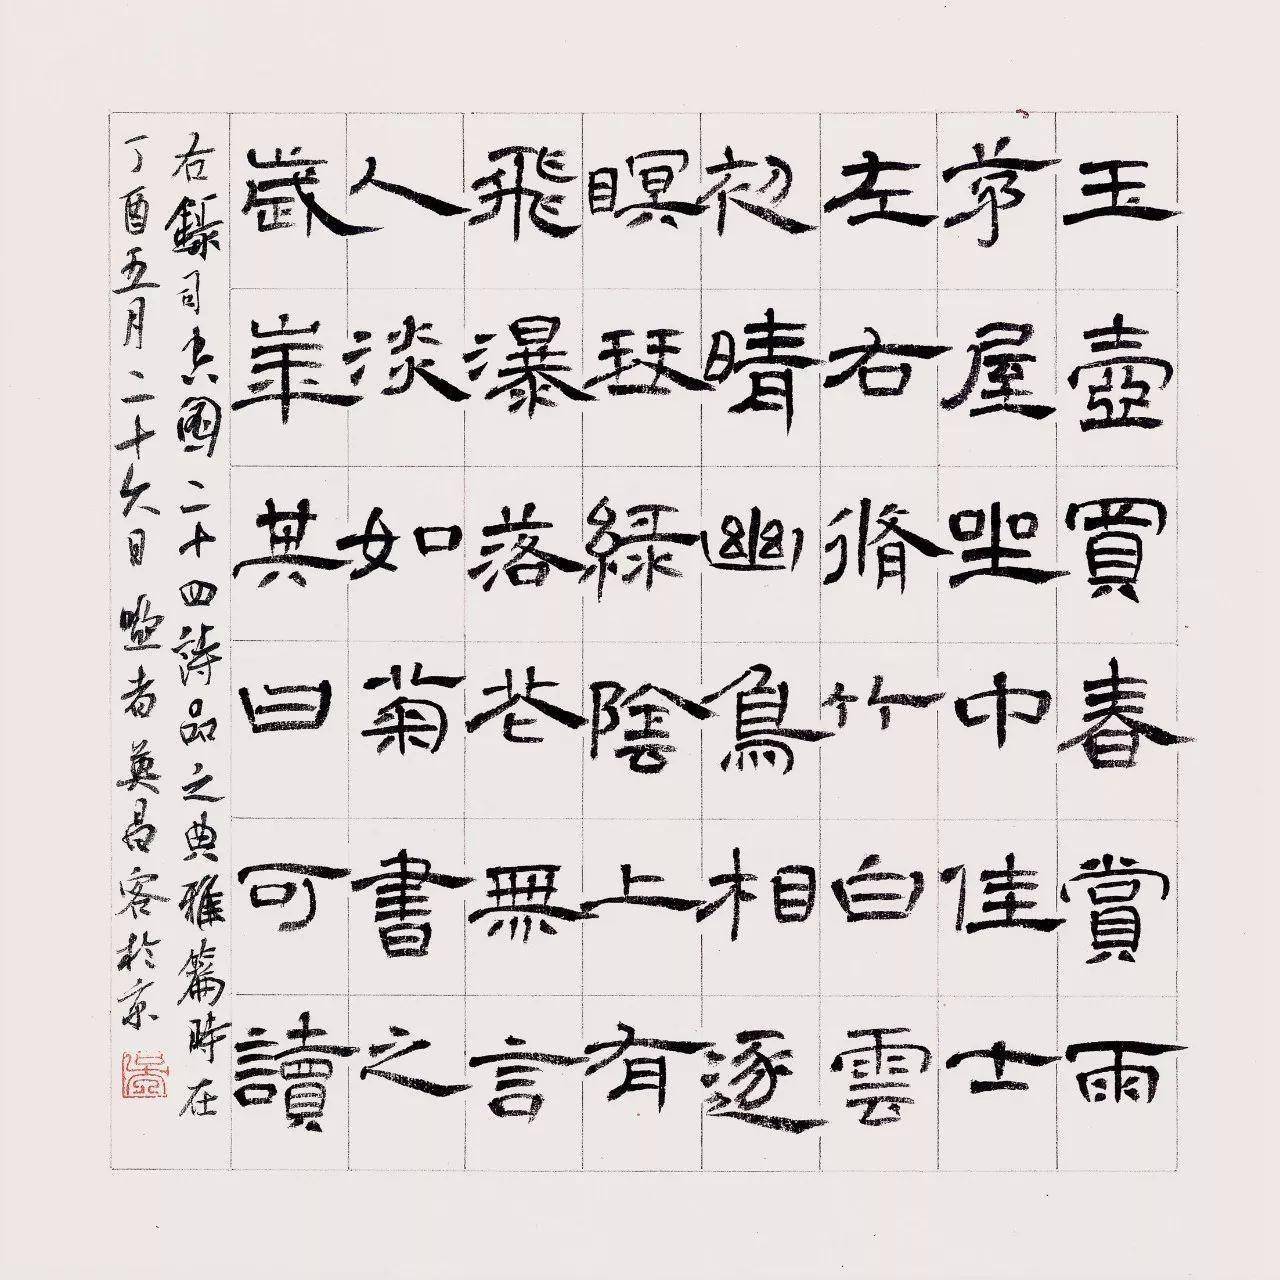 玉壺買春賞雨
茅屋坐中佳士
左右脩竹白雲
初晴幽鳥相逐
瞑琴綠陰上有
飛瀑落花無言
人淡如菊書之
歲華其曰可讀
右錄司空圖二十四詩品之典雅篇時在
丁酉五月二十六日 者 昌客於京